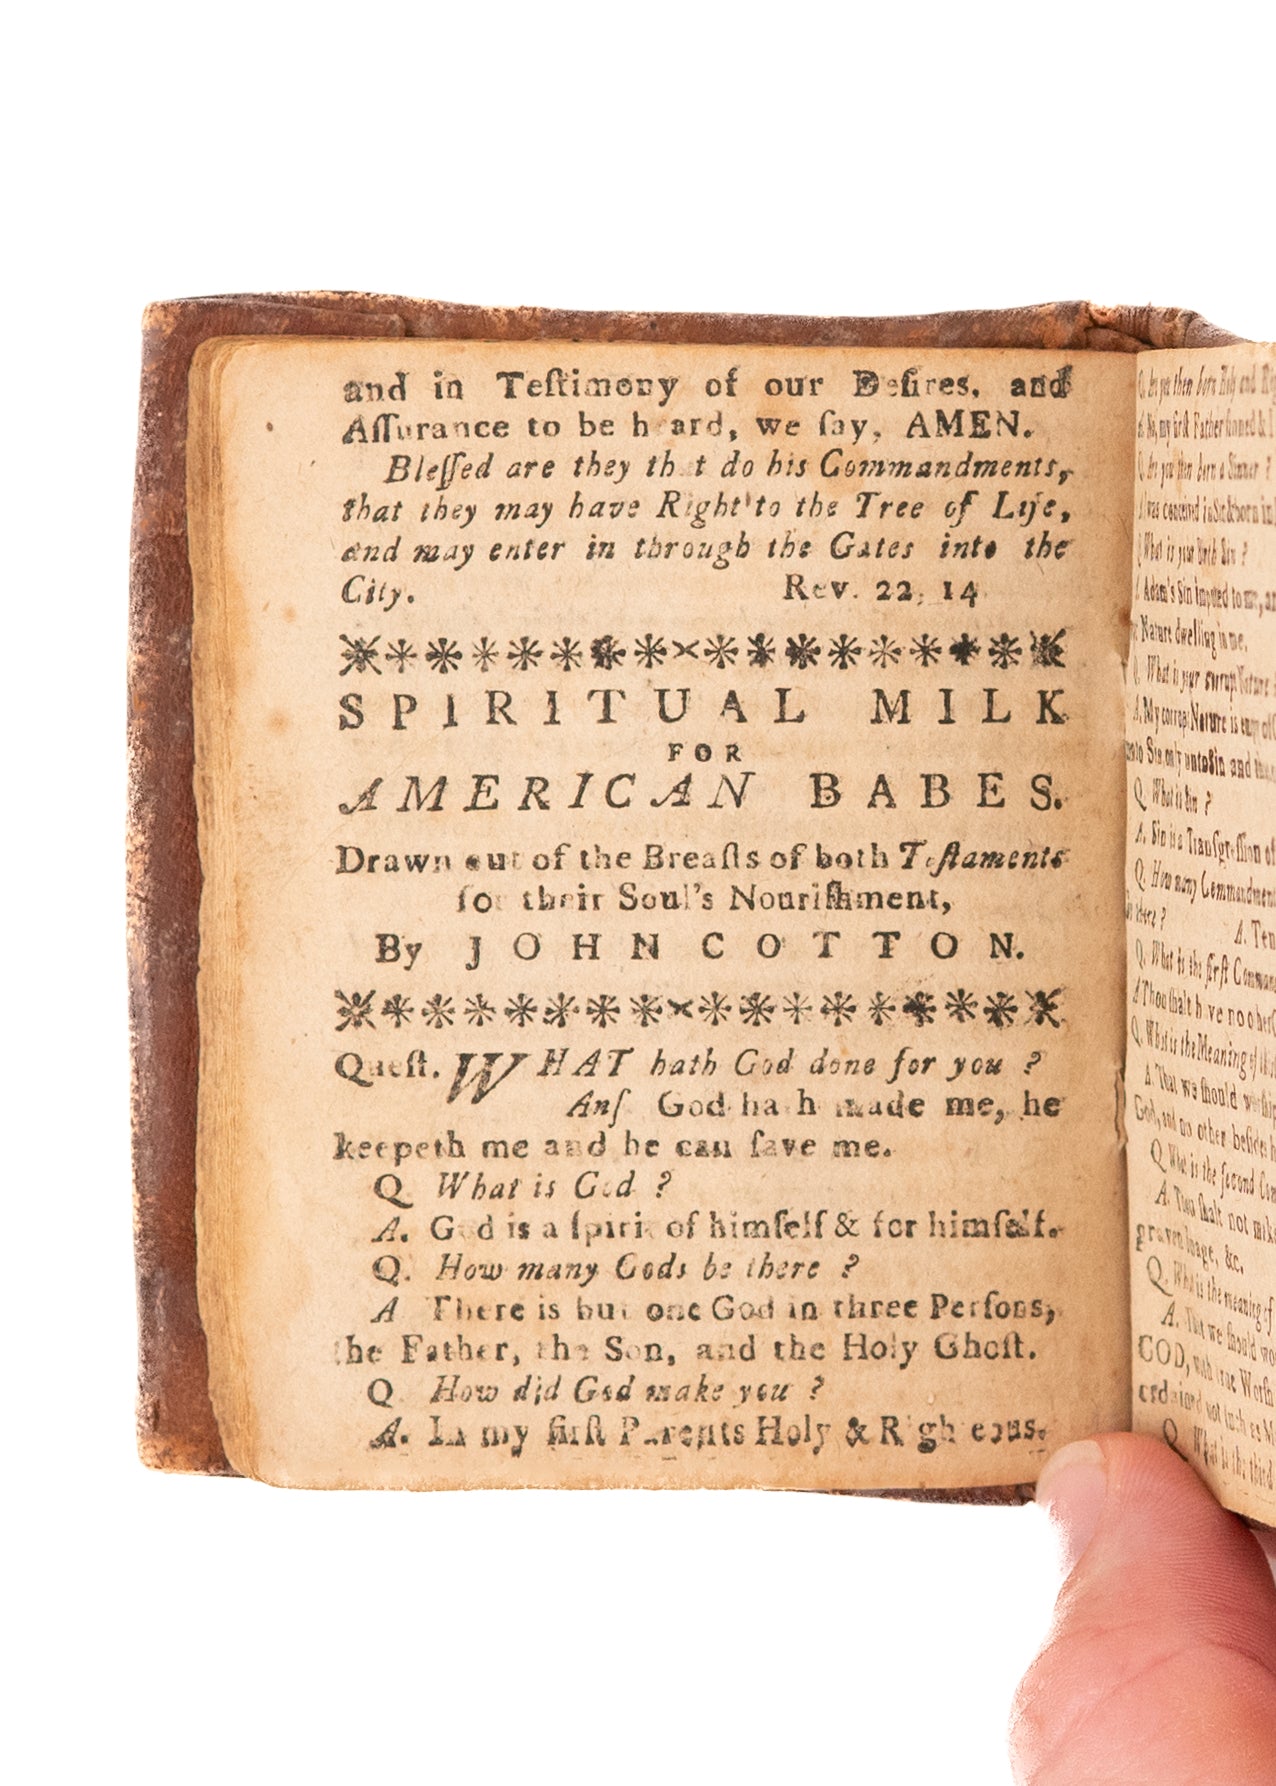 and in Teſtimony of our Deſires, and
Aſſurance to be heard, we ſay, AMEN.
Bleſſed are they that do his Commandments,
that they may have Right to the Tree of Life,
and may enter in through the Gates into the
City. Rev. 22, 14
SPIRITUAL MILK
FOR
AMERICAN BABES.
Drawn out of the Breaſts of both Teſtaments
for their Soul's Nouriſhment,
By JOHN COTTON.
Queſt. WHAT hath God done for you ?
Anſ God hath made me, he
keepeth me and he can ſave me.
Q What is God ?
A. God is a ſpirit of himſelf & for himſelf.
Q. How many Gods be there ?
A There is but one God in three Perſons,
the Father, the Son, and the Holy Ghoſt.
Q How did God make you ?
A. In my firſt Parents Holy & Righteous.
Q. Are you then born Holy and
A. No, my firſt Father ſinned &
Q. Are you then born a Sinner ?
was conceived in Sin & born in
What is your Birth Sin ?
Adam's Sin imputed to me,
Nature dwelling in me.
Q. What is your corrupt Nature
A. My corrupt Nature is
to Sin only unto Sin and
Q. What is Sin ?
A. Sin is a Tranſgreſſion of
Q. How many Commandment
there ? A. Ten
Q. What is the firſt Comman
A Thou ſhalt have no other
Q. What is the Meaning of
A. That we ſhould worſhip
God, and no other beſides
Q What is the ſecond Com
A. Thou ſhalt not make
graven Image, &c.
Q. What is the meaning of
A. That we ſhould wo
GOD, with true Worſh
ordained not ſuch as
Q What is the third